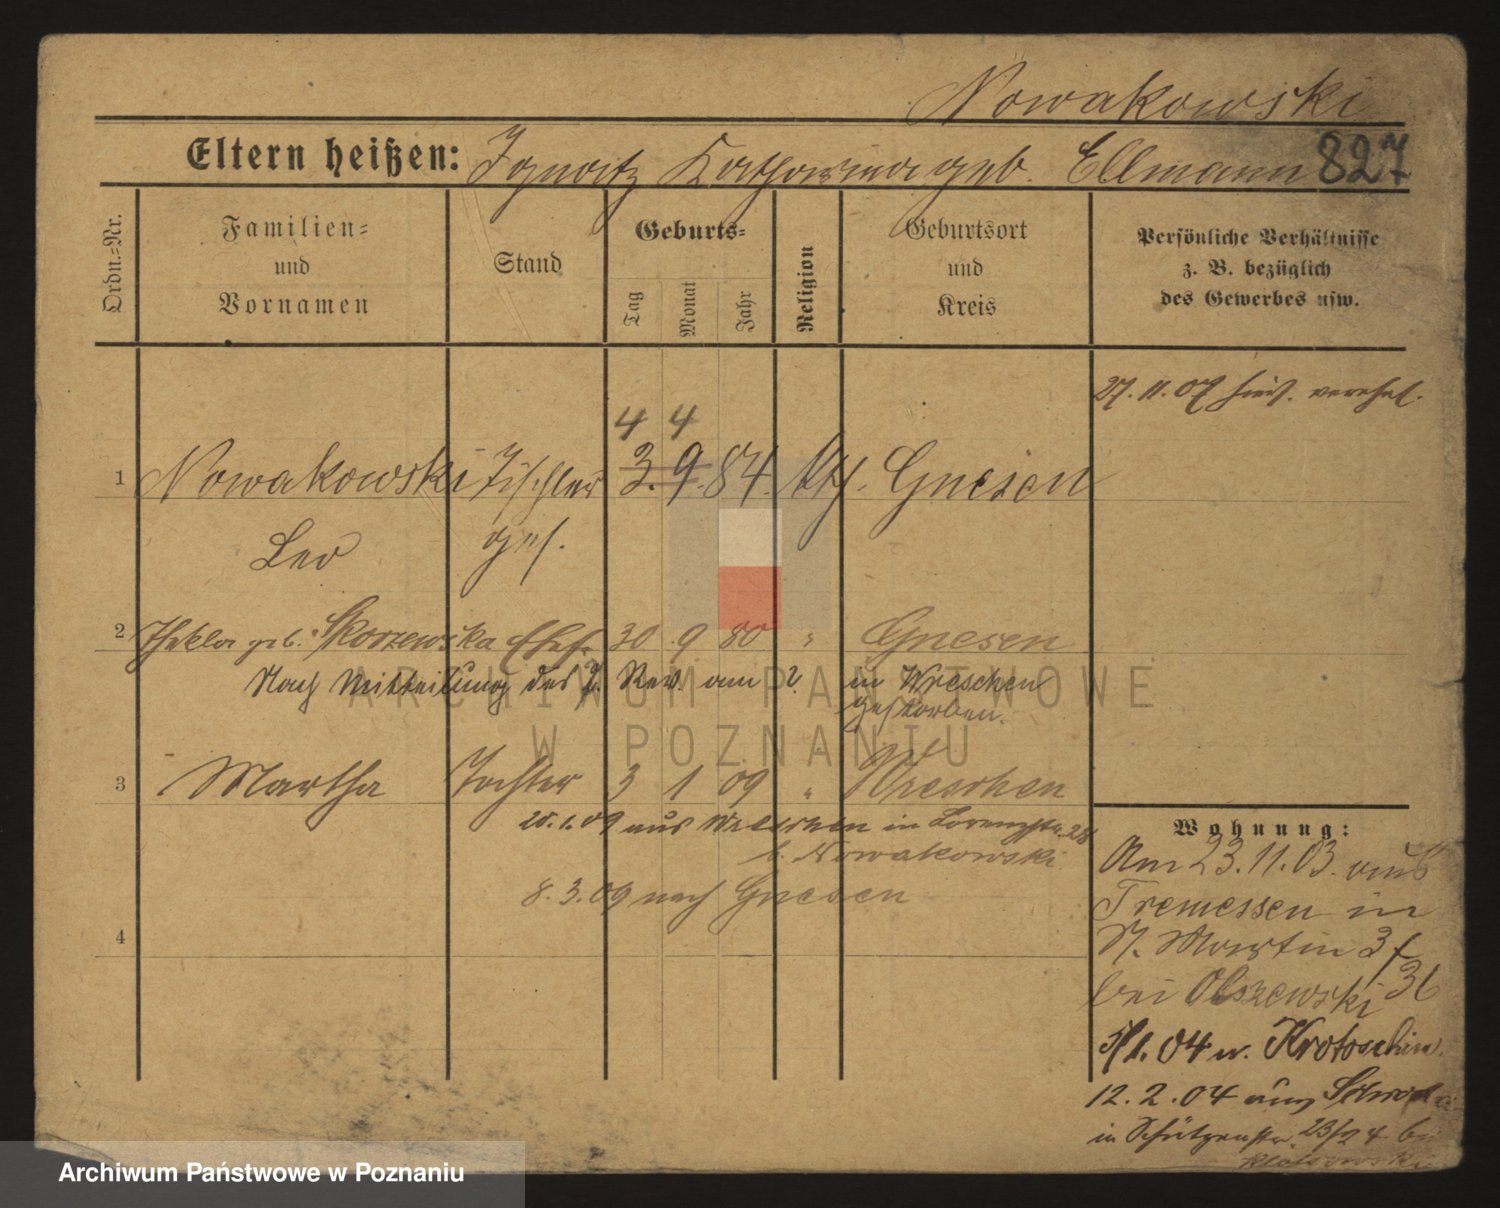 Nowakowski
Eltern heißen: Ignatz Katharina geb. Ellmann 827
Ordn.-Nr.
Familien-
und
Vornamen
Stand
Geburts-
Tag
Monat
Jahr
Religion
Geburtsort
und
Kreis
Persönliche Verhältnisse
z. B. bezüglich
des Gewerbes usw.
27. 11. 07 verehel.
4 4
1 Nowakowski Tischler 3. 9. 84. kth. Gnesen
Leo ges.
2 Thekla geb. Skorzewska Ehefr. 30 9 80 " Gnesen
Nach Mitteilung des 7. Rev. am ? in Wreschen
gestorben.
3 Martha Tochter 3 1 09 " Wreschen
20. 1. 09 aus Wreschen in 28
b. Nowakowski
8. 3. 09 nach Gnesen
4
Wohnung:
Am 23. 11. 03. aus
Tremessen in
St. Martin 37
bei Olszewski 36
5/1. 04 n. Krotoschin.
12. 2. 04 aus
in Schützenstr. 23/24 bei
ARCHIWUM PAŃSTWOWE
W POZNANIU
Archiwum Państwowe w Poznaniu